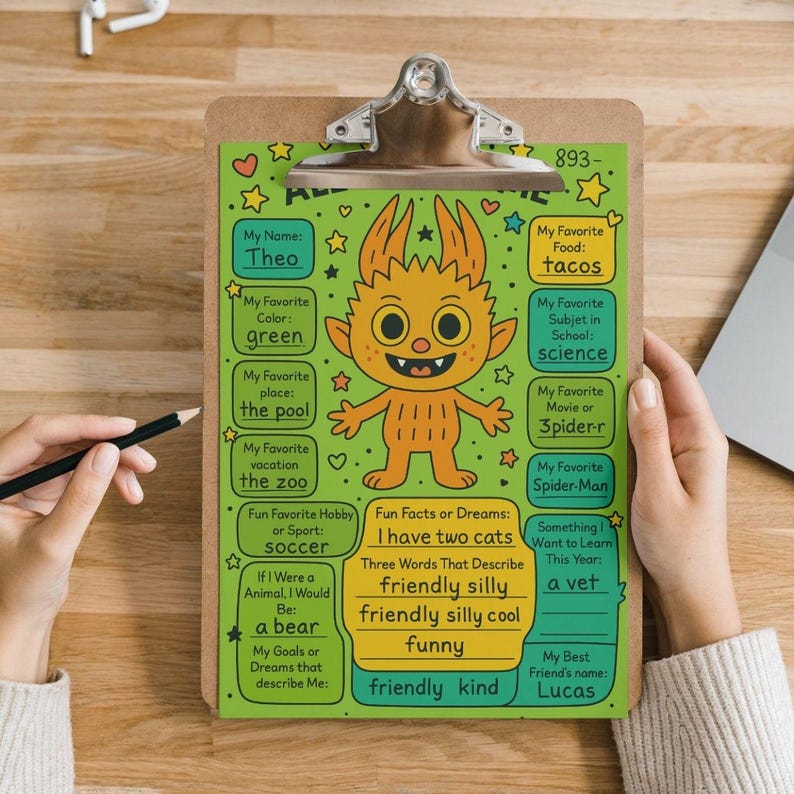 893-
My Name:
Theo
My Favorite
Color:
green
My Favorite
place:
the pool
My Favorite
vacation
the zoo
Fun Favorite Hobby
or Sport:
soccer
If I Were a
Animal, I Would
Be:
a bear
My Goals or
Dreams that
describe Me:
Fun Facts or Dreams:
I have two cats
Three Words That Describe
friendly silly
friendly silly cool
funny
friendly kind
My Favorite
Food:
tacos
My Favorite
Subjet in
School:
science
My Favorite
Movie or
3pider-r
My Favorite
Spider-Man
Something I
Want to Learn
This Year:
a vet
My Best
Friend's name:
Lucas